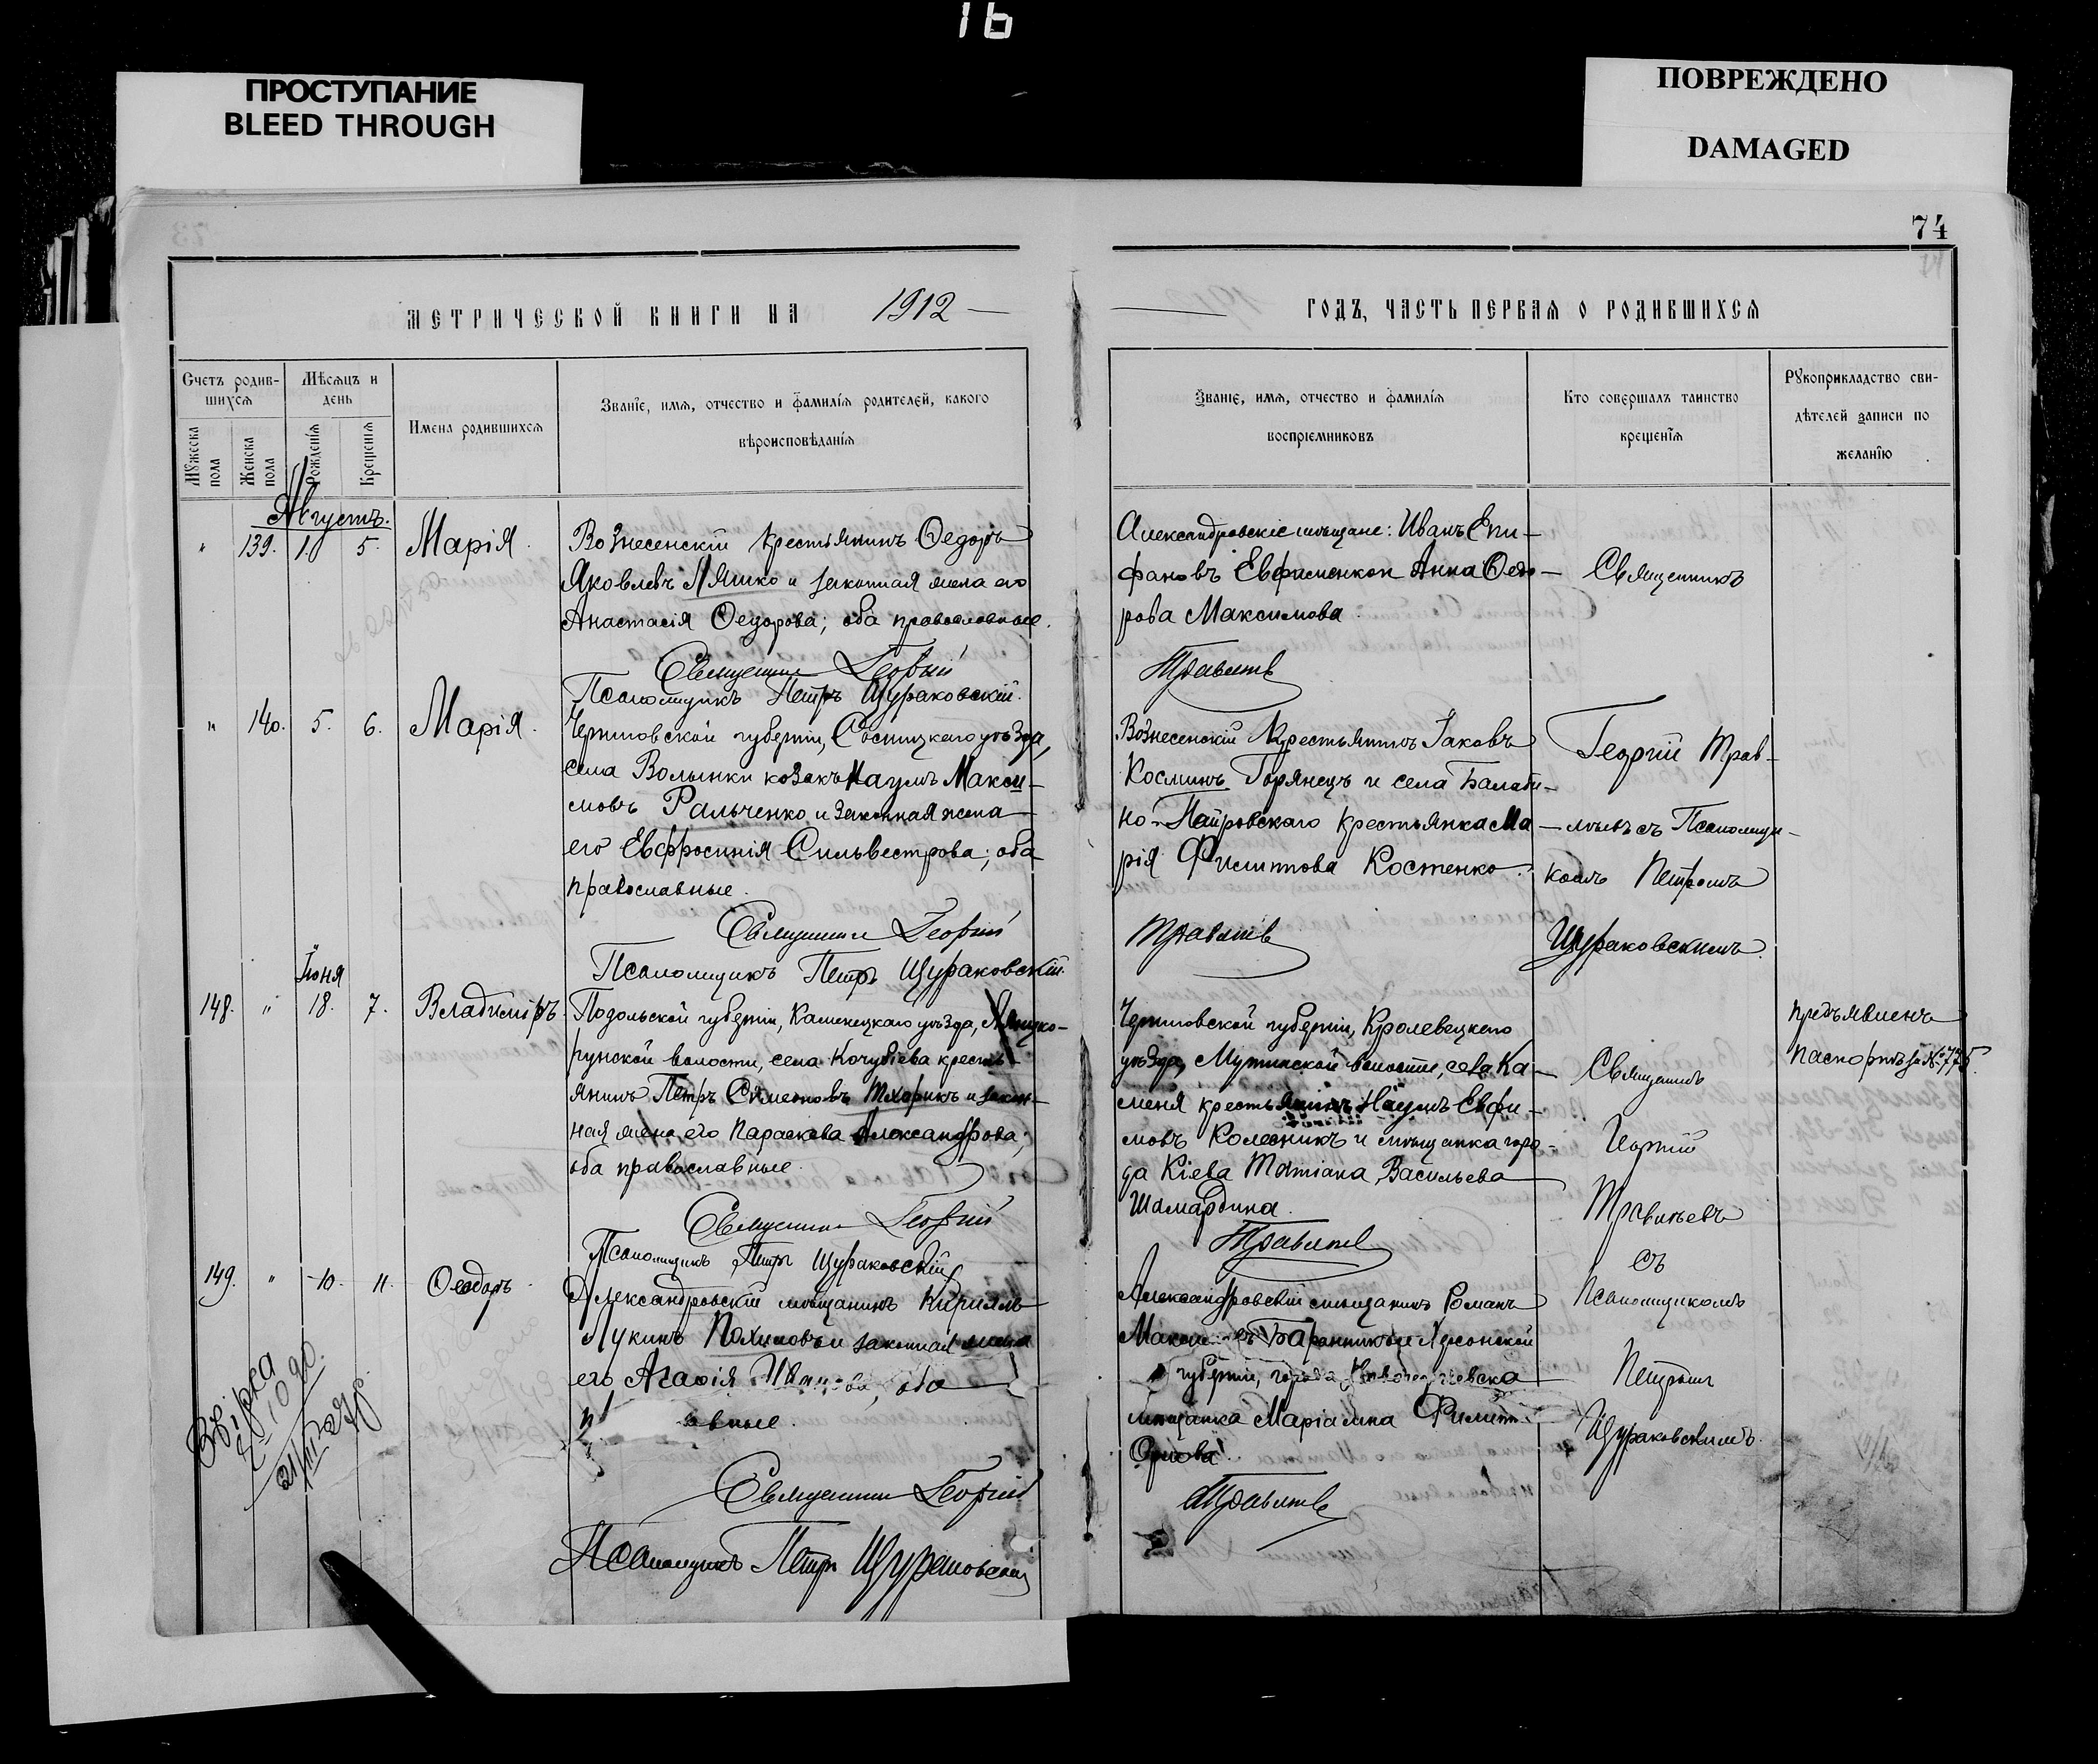 16
ПРОСТУПАНИЕ
BLEED THROUGH
ПОВРЕЖДЕНО
DAMAGED
74
МЕТРИЧЕСКОЙ КНИГИ НА 1912
ГОДЪ, ЧАСТЬ ПЕРВАЯ О РОДИВШИХСЯ
Счетъ родив-
шихся
Мѣсяцъ и
день
Мужеска
пола
Женска
пола
Рожденія
Крещенія
Имена родившихся
Званіе, имя, отчество и фамилія родителей, какого
вѣроисповѣданія
Званіе, имя, отчество и фамилія
воспріемниковъ
Кто совершалъ таинство
крещенія
Рукоприкладство сви-
дѣтелей записи по
желанію
Августъ.
" 139. 1. 5. Марія.
Вознесенскій крестьянинъ Ѳедоръ
Яковлевъ Ляшко и законная жена его
Анастасія Ѳедорова; оба православные.
Священникъ Георгій
Псаломщикъ Петръ Щураковскій.
Александровскіе мѣщане: Иванъ Епи-
фановъ Евфименко и Анна Ѳедо-
рова Максимова.
Травлѣевъ
Священникъ
" 140. 5. 6. Марія.
Черниговской губерніи, Сосницкаго уѣзда,
села Волынки козакъ Наумъ Макси-
мовъ Ральченко и законная жена
его Евфросинія Сильвестрова; оба
православные.
Священникъ Георгій
Псаломщикъ Петръ Щураковскій.
Вознесенскій крестьянинъ Іаковъ
Косминъ Горянецъ и села
крестьянка Ма-
рія Филиппова Костенко.
Георгій Трав-
лѣевъ съ Псаломщи-
комъ Петромъ
Щураковскимъ.
Іюня
148. " 18. 7. Владиміръ.
Подольской губерніи, Каменецкаго уѣзда, Лянцко-
рунской волости, села Кочубіева кресть-
янинъ Петръ Симеоновъ Тхорикъ и закон-
ная жена его Параскева Александрова;
оба православные.
Священникъ Георгій
Псаломщикъ Петръ Щураковскій
Черниговской губерніи, Кролевецкаго
уѣзда, Мутинской волости, села Ка-
меня крестьянинъ Наумъ Евфи-
мовъ Колесникъ и мѣщанка горо-
да Кіева Татіана Васильева
Шамардина.
Священникъ
Георгій
съ
Псаломщикомъ
Петромъ
Щураковскимъ.
предъявленъ
паспортъ за № 775.
149. " 10. 11. Ѳеодоръ.
Александровскій мѣщанинъ Кириллъ
Лукинъ Похиловъ и законная жена
его Агафія Иванова, оба
Священникъ Георгій
Псаломщикъ Петръ Щураковскій
Александровскій мѣщанинъ Романъ
Херсонской
губерніи, города Новогеоргіевска
мѣщанка
Орлова.
Звірка